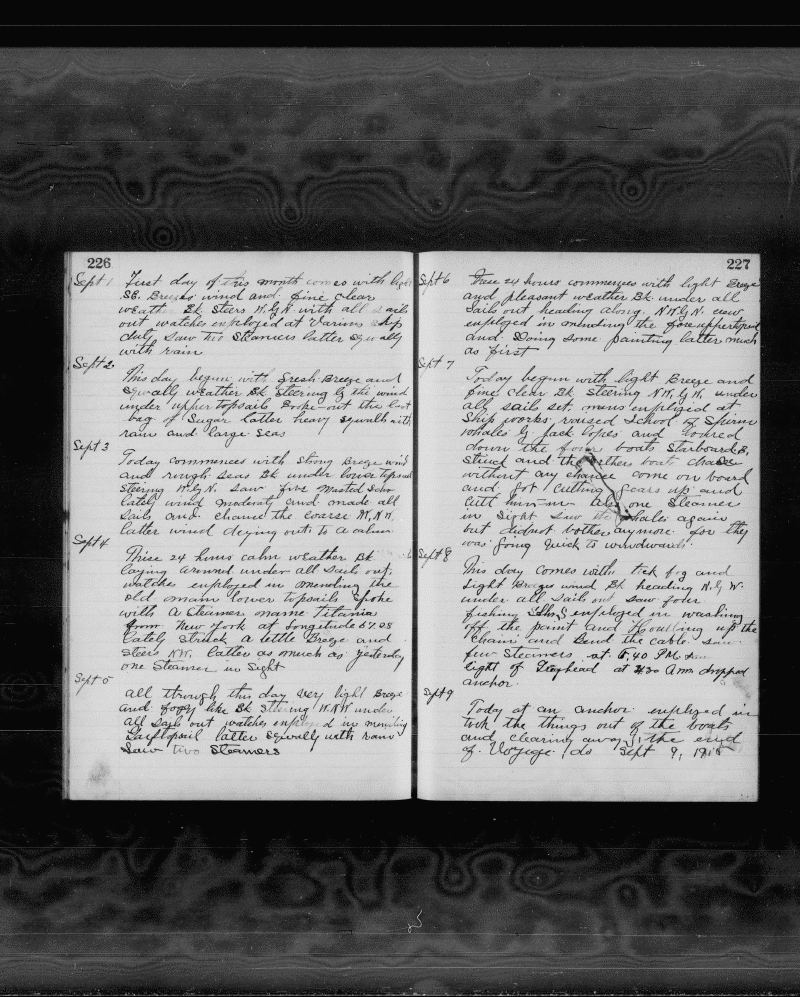 226
Sept 1 First day of this month comes with light
SE. Breezes wind and fine clear
weather Bk Steers W.G.N with all sails
out watches employed at Varius ship
duty Saw two Steamers latter squally
with rain
Sept 2
This day begun with fresh Breeze and
squally weather Bk Steering by the wind
under upper topsails Broke-out the last
bag of Sugar latter heavy squalls with
rain and large seas
Sept 3
Today commences with Strong Breeze wind
and rough Seas Bk under lower topsails
Steering N.G.N. Saw five Masted Scho
lately wind moderaty and made all
Sails and Chance the coarse N.N.W.
latter wind dieying out to a calm
Sept 4
Thise 24 hours calm weather Bk
laying around under all Sails out,
watches employed in mending the
old main lower topsails Spoke
with a Steamer name Titania
from New York at Longitude 67.28
lately Struck a lettle Breeze and
Steers NW. latter as much as yesterday
one Steamer in Sight
Sept 5
all through this day Very light Breeze
and foggy like Bk Steering W.N.W under
All Sails out watches employed in mending
Gafftopsail latter squally with rain
Saw two Steamers
227
Sept 6 These 24 hours commences with light Breeze
and pleasant weather Bk under all
Sails out heading along N.W.G.N. crew
employed in mending the foreuppertopsail
and Doing some painting latter much
as first
Sept 7
Today begun with light Breeze and
fine clear Bk Steering NW.G.W. under
all sails set, mens employed at
Ship works raised School of Sperm
whales by Jack lopes and lowred
down the four boats Starboard B,
Struck and the others boats chase
without any chance come on board
and got Cutting Gears up and
Cutt him-in Also one Steamer
in Sight Saw the whales again
but didnot bother anymore for they
was going quick to windwards.
Sept 8
This day comes with tick fog and
Light Breezes wind Bk heading N.G W.
under all Sails out Saw four
fishing Schs employed in washing
off the paint and Houling up the
Chain and Bend the Cable saw
few Steamers at 6,40 P.M. saw
light of Gayhead at 4.30 A.m. dropped
anchor.
Sept 9
Today at an anchor employed in
took the things out of the boats
and clearing away, the end
of Voyage do Sept 9, 1918